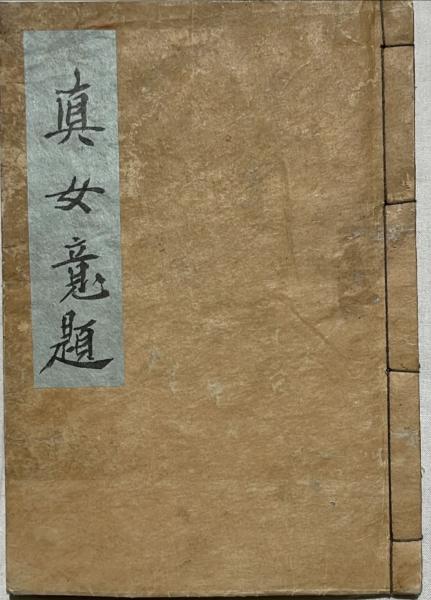 真女意題